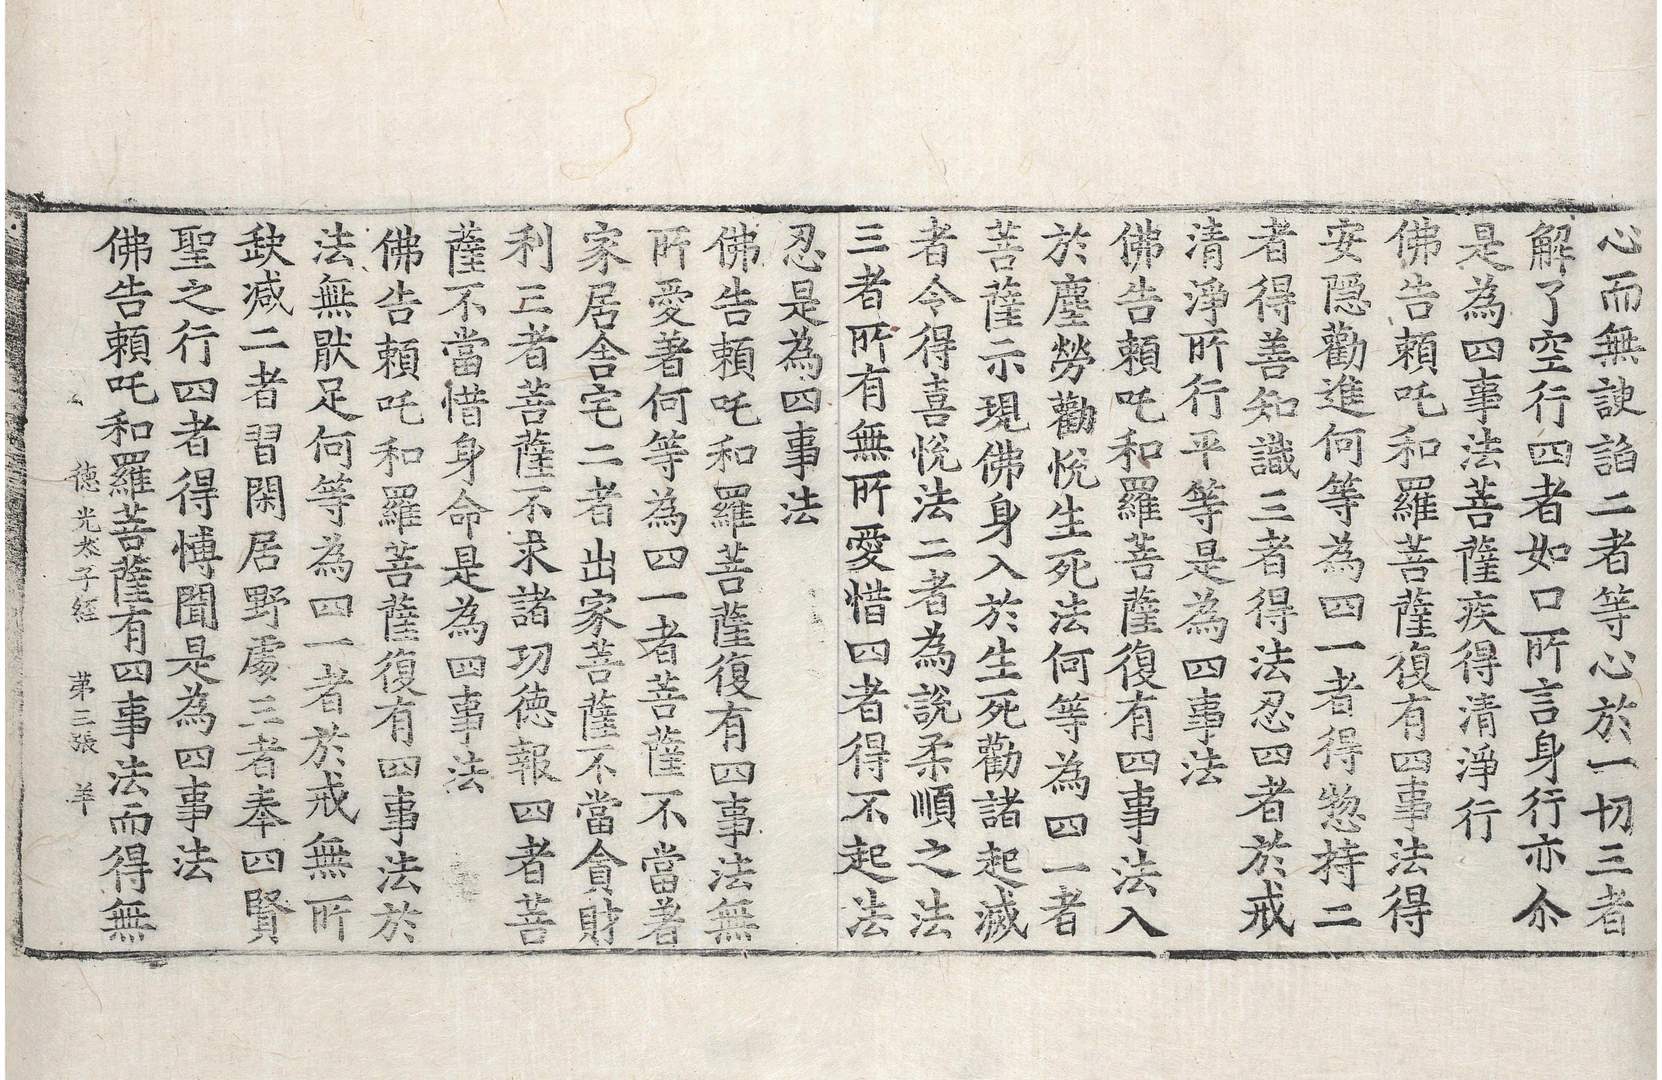 心而無諛諂二者等心於一切三者
解了空行四者如口所言身行亦尒
是為四事法菩薩疾得清淨行
佛告頼吒和羅菩薩復有四事法得
安隱勸進何等為四一者得惣持二
者得善知識三者得法忍四者於戒
清淨所行平等是為四事法
佛告頼吒和羅菩薩復有四事法入
於塵勞勸悅生死法何等為四一者
菩薩示現佛身入於生死勸諸起滅
者令得喜悅法二者為說柔順之法
三者所有無所愛惜四者得不起法
忍是為四事法
佛告頼吒和羅菩薩復有四事法無
所愛著何等為四一者菩薩不當著
家居舍宅二者出家菩薩不當貪財
利三者菩薩不求諸功德報四者菩
薩不當惜身命是為四事法
佛告頼吒和羅菩薩復有四事法於
法無猒足何等為四一者於戒無所
缺減二者習閑居野處三者奉四賢
聖之行四者得博聞是為四事法
佛告頼吒和羅菩薩有四事法而得無
德光太子經 第三張 羊